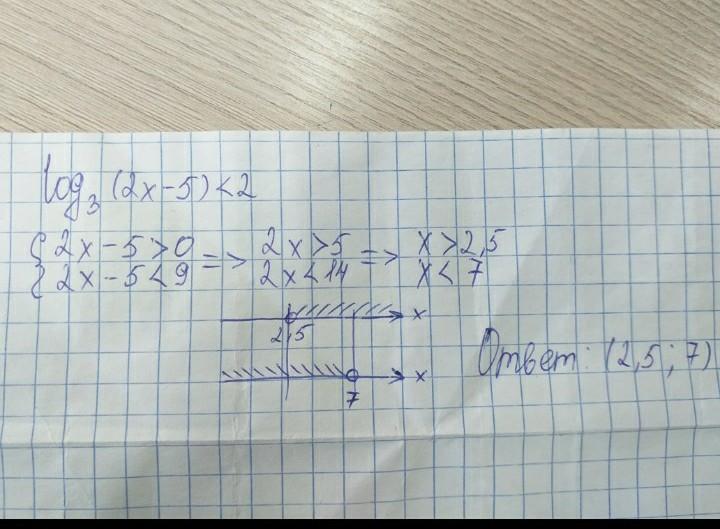 log₃ (2x-5) < 2
{ 2x - 5 > 0 => 2x > 5 => x > 2,5
{ 2x - 5 < 9 => 2x < 14 => x < 7
x
2,5
x
7
Ответ: (2,5; 7)